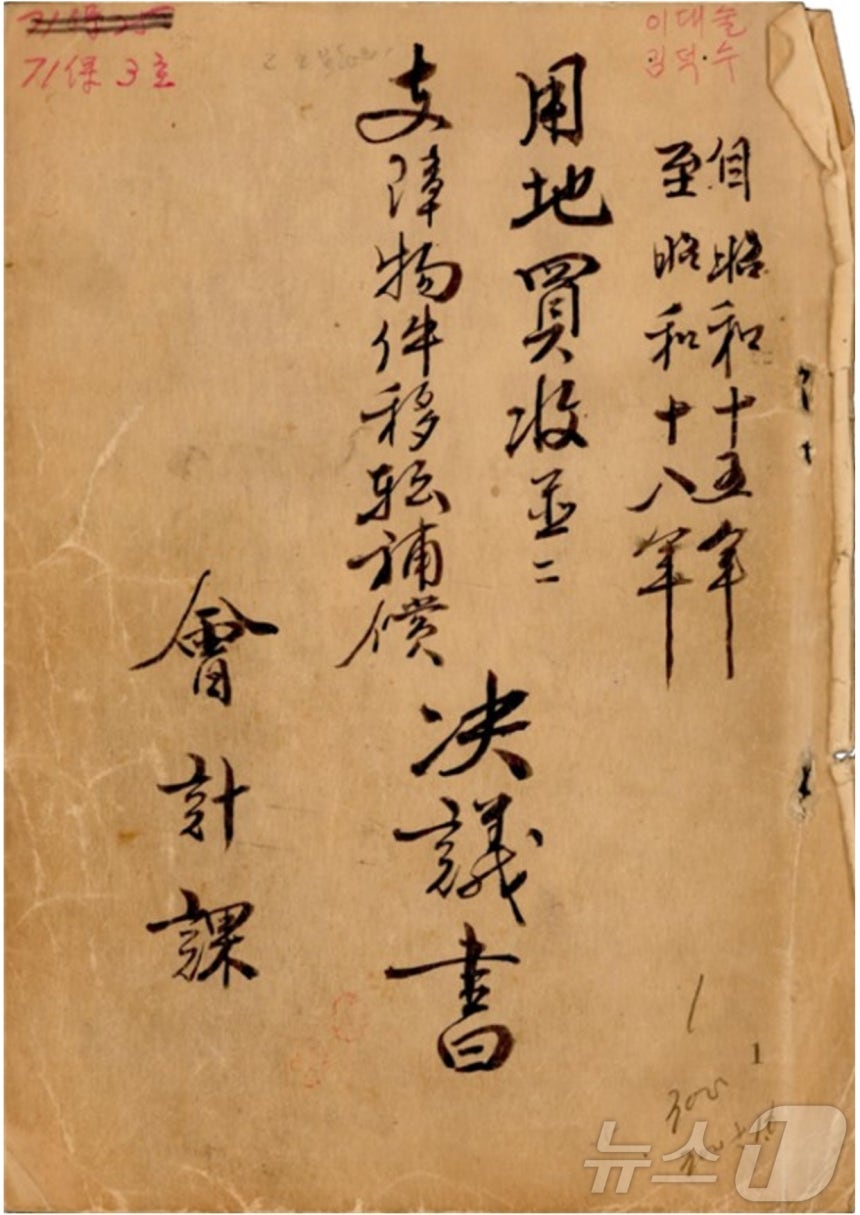 71保 3호
이대술
김덕수
自昭和十五年
至昭和十八年
用地買收並ニ
支障物件移転補償
決議書
會計課
1
뉴스1